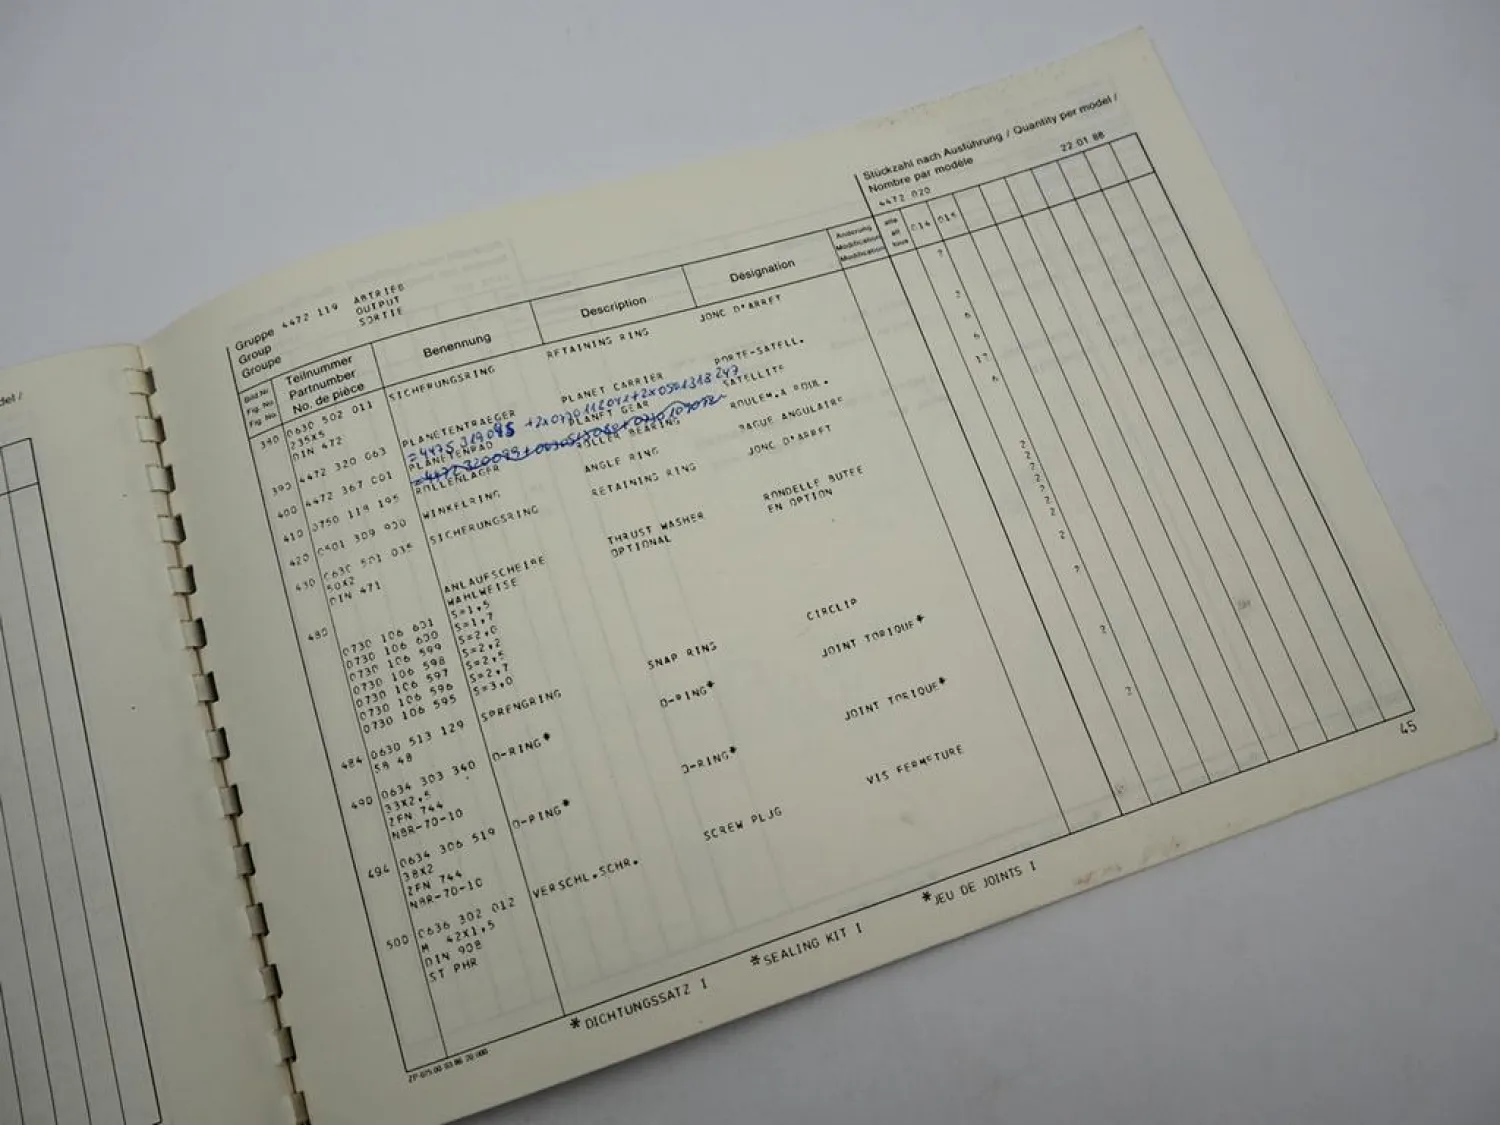 del /
Stückzahl nach Ausführung / Quantity per model /
Nombre par modèle
22 01 88
4472 020
Gruppe 4472 119 ABTRIEB
Group OUTPUT
Groupe SORTIE
Bild Nr. Teilnummer Benennung Description Désignation Änderung alle 014 015
Fig. No Partnumber Modification all
Fig. No. No. de pièce Modification tous
380 0630 502 011 SICHERUNGSRING RETAINING RING JONC D'ARRET 2
235X5
DIN 472
390 4472 320 063 PLANETENTRAEGER PLANET CARRIER PORTE-SATELL. 2
=4475 319 095 +2x0730 112 041+2x0501 318 247
400 4472 367 001 PLANETENRAD PLANET GEAR SATELLITE 6
410 0750 119 195 ROLLENLAGER ROLLER BEARING ROULEM.A ROUL.
420 0501 309 930 WINKELRING ANGLE RING BAGUE ANGULAIRE 12
430 0630 501 035 SICHERUNGSRING RETAINING RING JONC D'ARRET 6
50X2
DIN 471
480 ANLAUFSCHEIBE THRUST WASHER RONDELLE BUTEE
WAHLWEISE OPTIONAL EN OPTION
0730 106 601 S=1,5 2
0730 106 600 S=1,7 2
0730 106 599 S=2,0 2
0730 106 598 S=2,2 2
0730 106 597 S=2,5 2
0730 106 596 S=2,7 2
0730 106 595 S=3,0 2
484 0630 513 129 SPRENGRING SNAP RING CIRCLIP 2
SB 48
490 0634 303 340 O-RING* O-RING* JOINT TORIQUE* 2
33X2,5
ZFN 744
NBR-70-10
494 0634 306 519 O-RING* O-RING* JOINT TORIQUE* 2
38X2
ZFN 744
NBR-70-10
500 0636 302 012 VERSCHL.SCHR. SCREW PLUG VIS FERMETURE 2
M 42X1,5
DIN 908
ST PHR
*DICHTUNGSSATZ I *SEALING KIT I *JEU DE JOINTS I
45